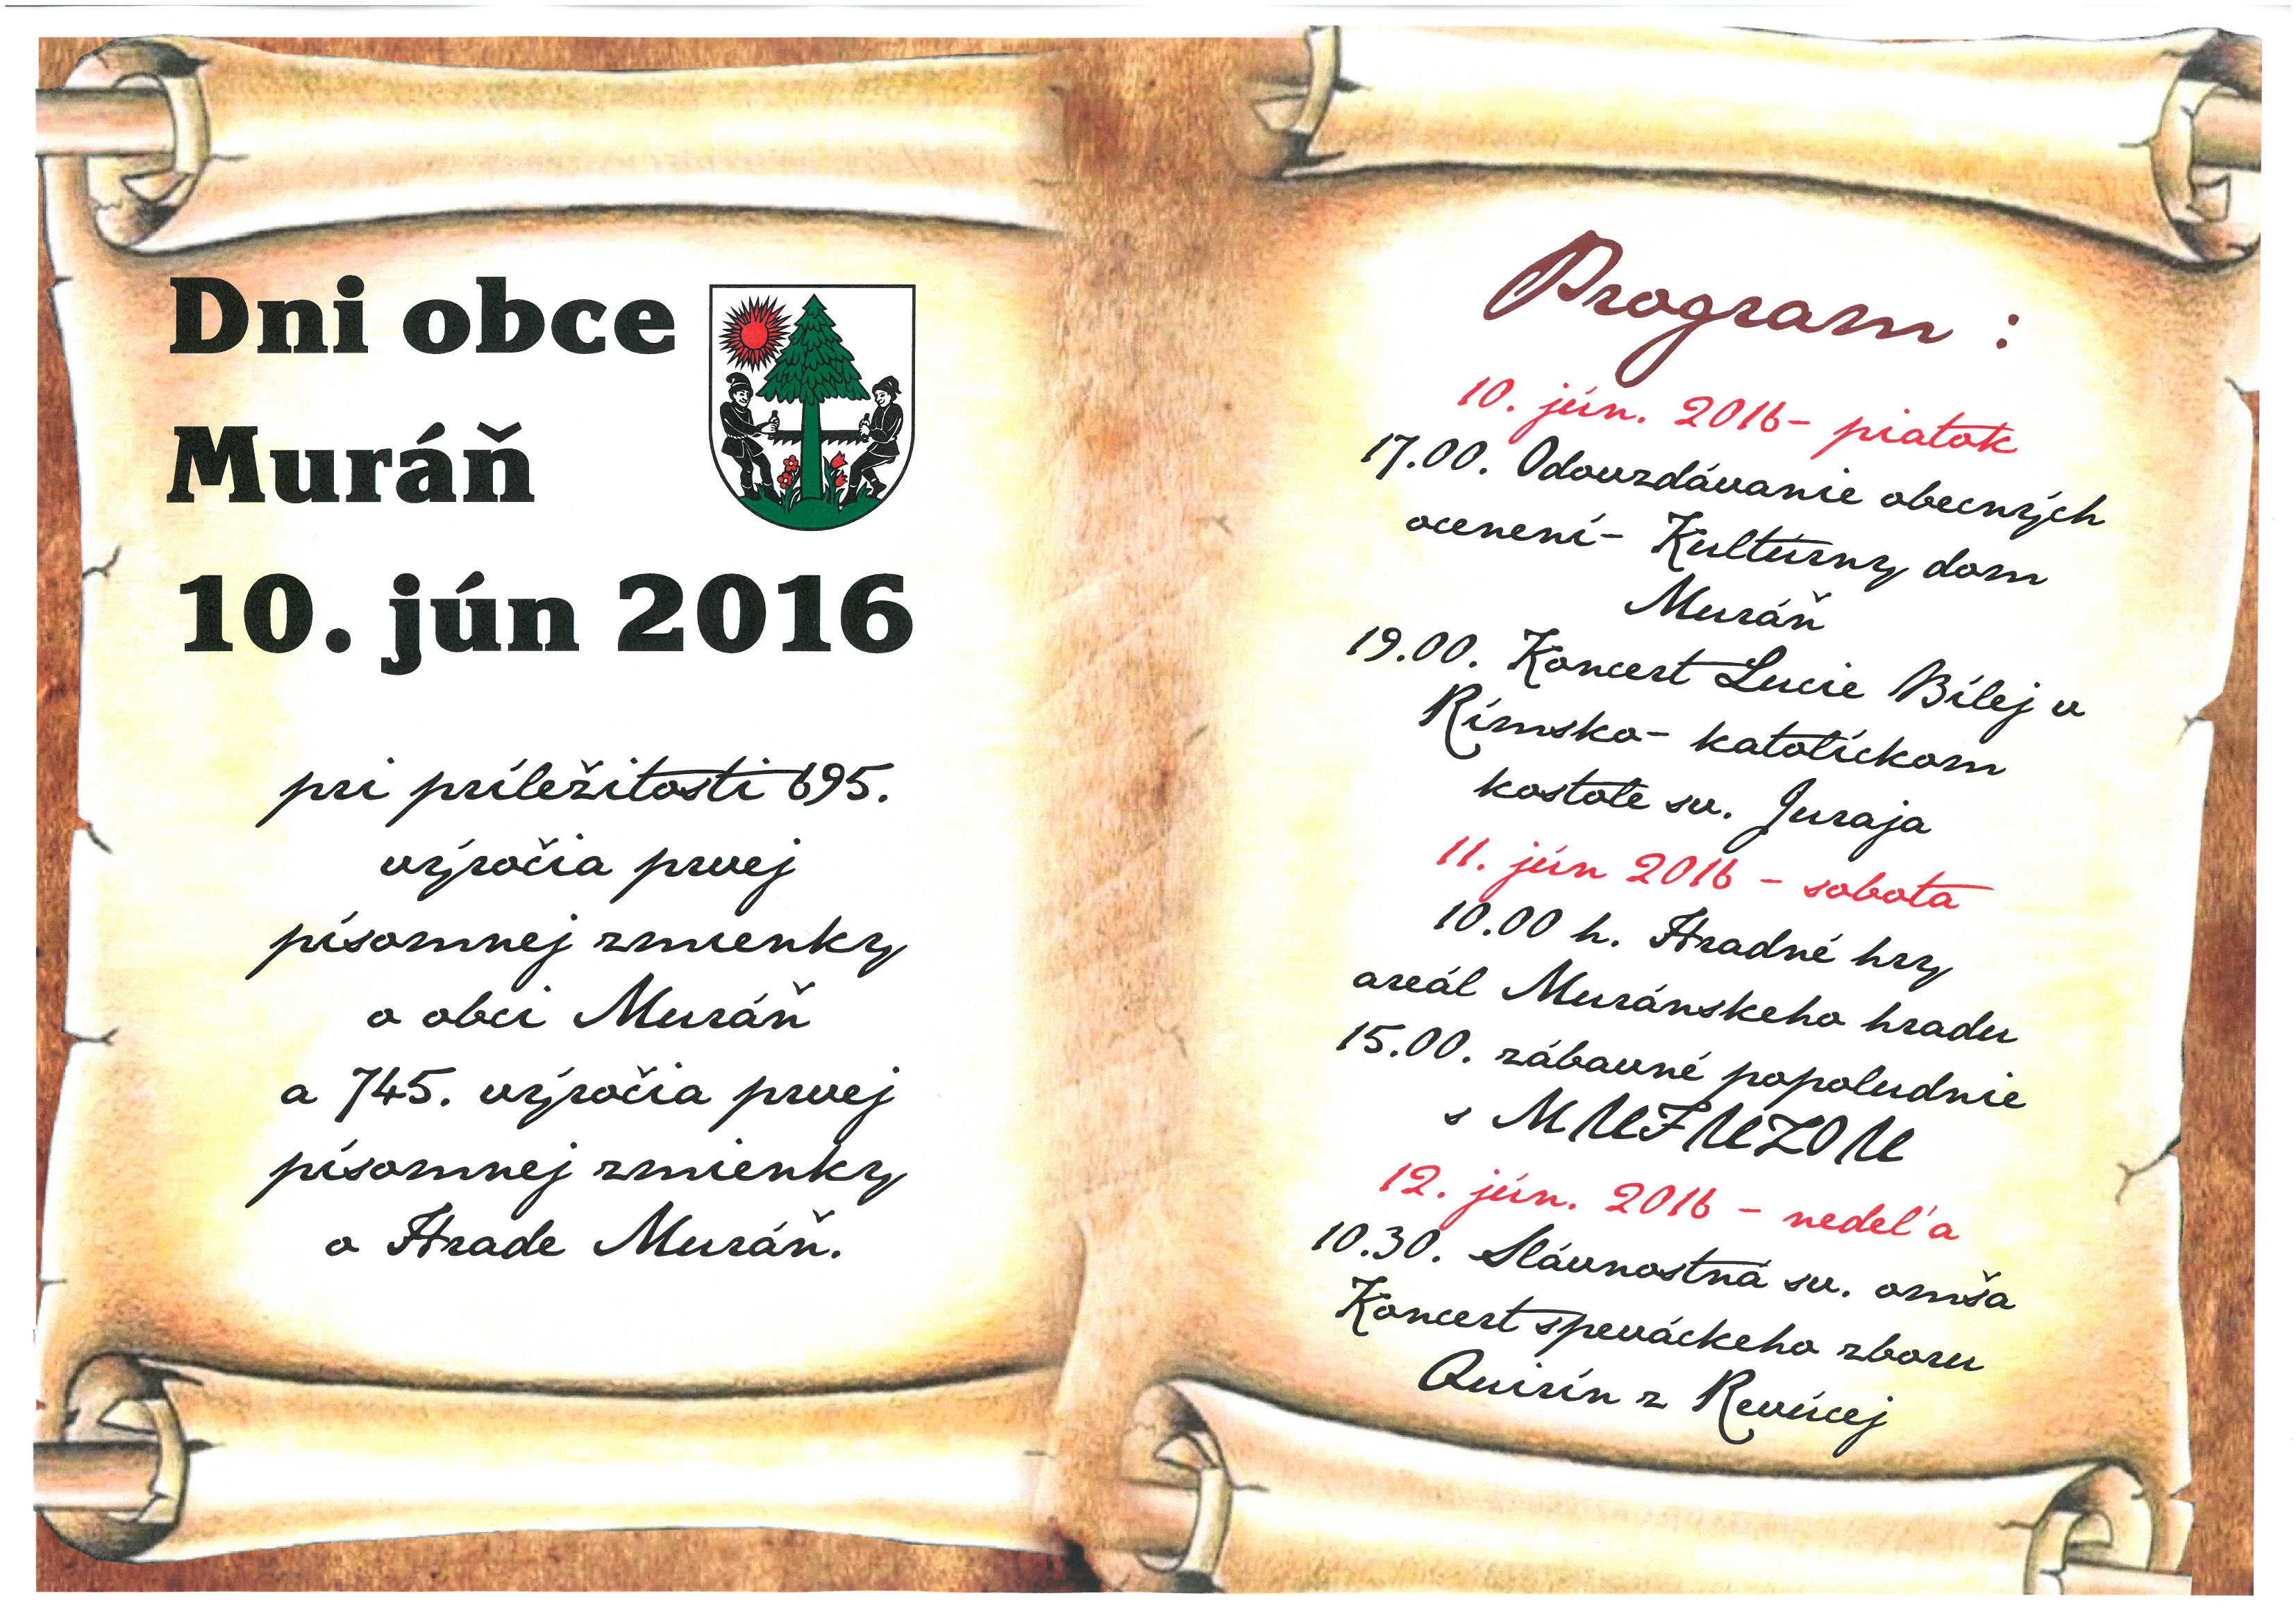 Dni obce
Muráň
10. jún 2016
pri príležitosti 695.
výročia prvej
písomnej zmienky
o obci Muráň
a 745. výročia prvej
písomnej zmienky
o Hrade Muráň.
Program :
10. jún. 2016- piatok
17.00. Odovzdávanie obecných
ocenení- Kultúrny dom
Muráň
19.00. Koncert Lucie Bílej v
Rímsko- katolíckom
kostole sv. Juraja
11. jún 2016 - sobota
10.00 h. Hradné hry
areál Muránskeho hradu
15.00. zábavné popoludnie
s MUFUZOU
12. jún. 2016 - nedel'a
10.30. Slávnostná sv. omša
Koncert speváckeho zboru
Quirín z Revúcej